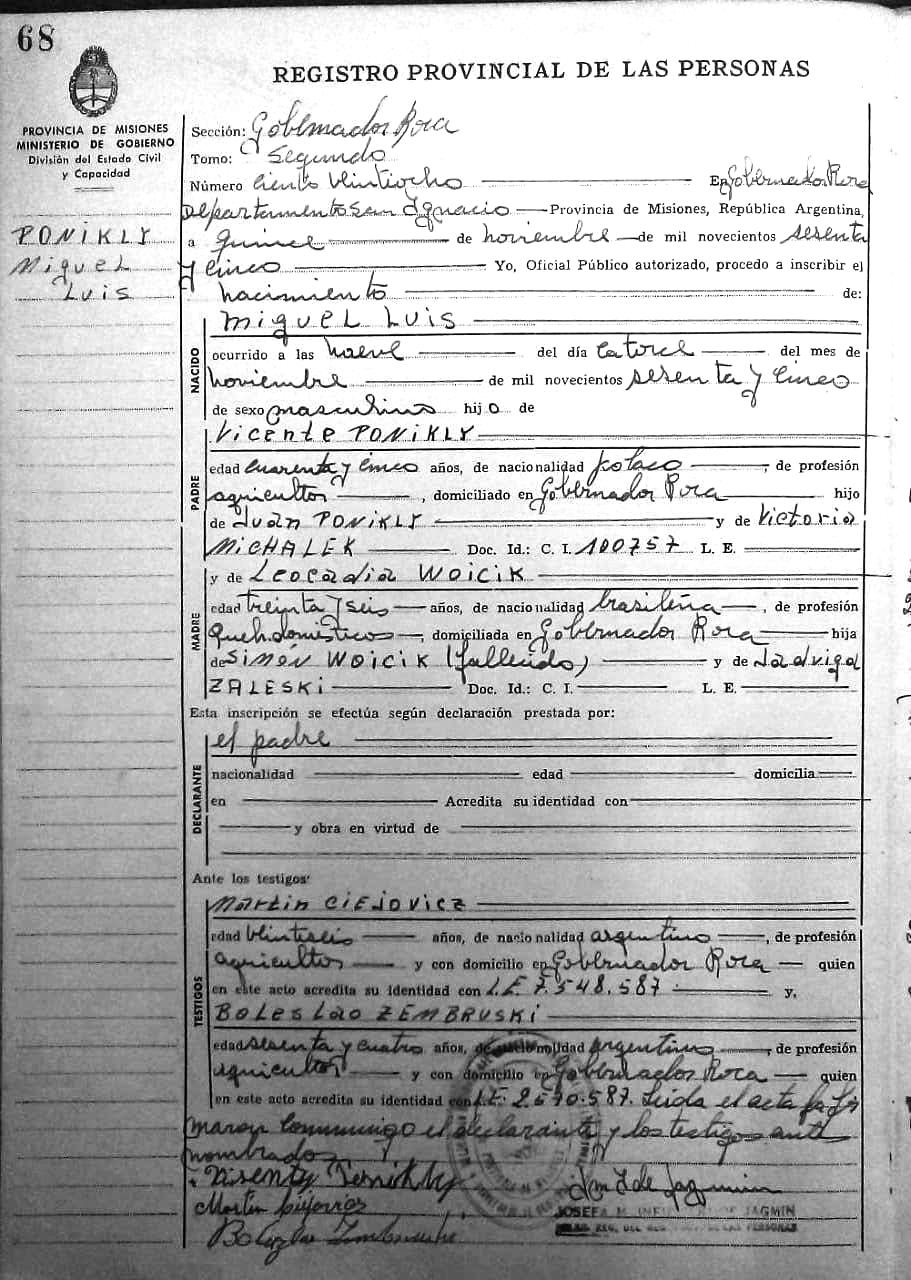 68
REGISTRO PROVINCIAL DE LAS PERSONAS
PROVINCIA DE MISIONES
MINISTERIO DE GOBIERNO
División del Estado Civil
y Capacidad
PONIKLY
MIGUEL
LUIS
Sección: Gobernador Roca
Tomo: Segundo
Número ciento veintiocho En Gobernador Roca
Departamento San Ignacio Provincia de Misiones, República Argentina,
a quince de noviembre de mil novecientos sesenta
y cinco Yo, Oficial Público autorizado, procedo a inscribir el
nacimiento de:
MIGUEL LUIS
NACIDO
ocurrido a las nueve del día catorce del mes de
noviembre de mil novecientos sesenta y cinco
de sexo masculino hijo de
Vicente PONIKLY
PADRE
edad cuarenta y cinco años, de nacionalidad polaco, de profesión
agricultor, domiciliado en Gobernador Roca hijo
de Juan PONIKLY y de Victoria
MICHALEK Doc. Id.: C. I. 100757 L. E.
y de Leocadia WOICIK
MADRE
edad treinta y seis años, de nacionalidad brasileña, de profesión
Queh. domésticos, domiciliada en Gobernador Roca hija
de Simón WOICIK (fallecido) y de Jadviga
ZALESKI Doc. Id.: C. I. L. E.
Esta inscripción se efectúa según declaración prestada por:
el padre
DECLARANTE
nacionalidad edad domicilia
en Acredita su identidad con
y obra en virtud de
Ante los testigos:
Martin CIEJOVICZ
TESTIGOS
edad veintiseis años, de nacionalidad argentino, de profesión
agricultor y con domicilio en Gobernador Roca quien
en este acto acredita su identidad con L.E 7.548.587 y,
BOLESLAO ZEMBRUSKI
edad sesenta y cuatro años, de nacionalidad argentino, de profesión
agricultor y con domicilio en Gobernador Roca quien
en este acto acredita su identidad con L.E 2.570.587. Leida el acta la fir
maron conmingo el declarante y los testigos ante
nombrados
Martin
JOSEFA M. DE JAGMIN
DE LAS PERSONAS